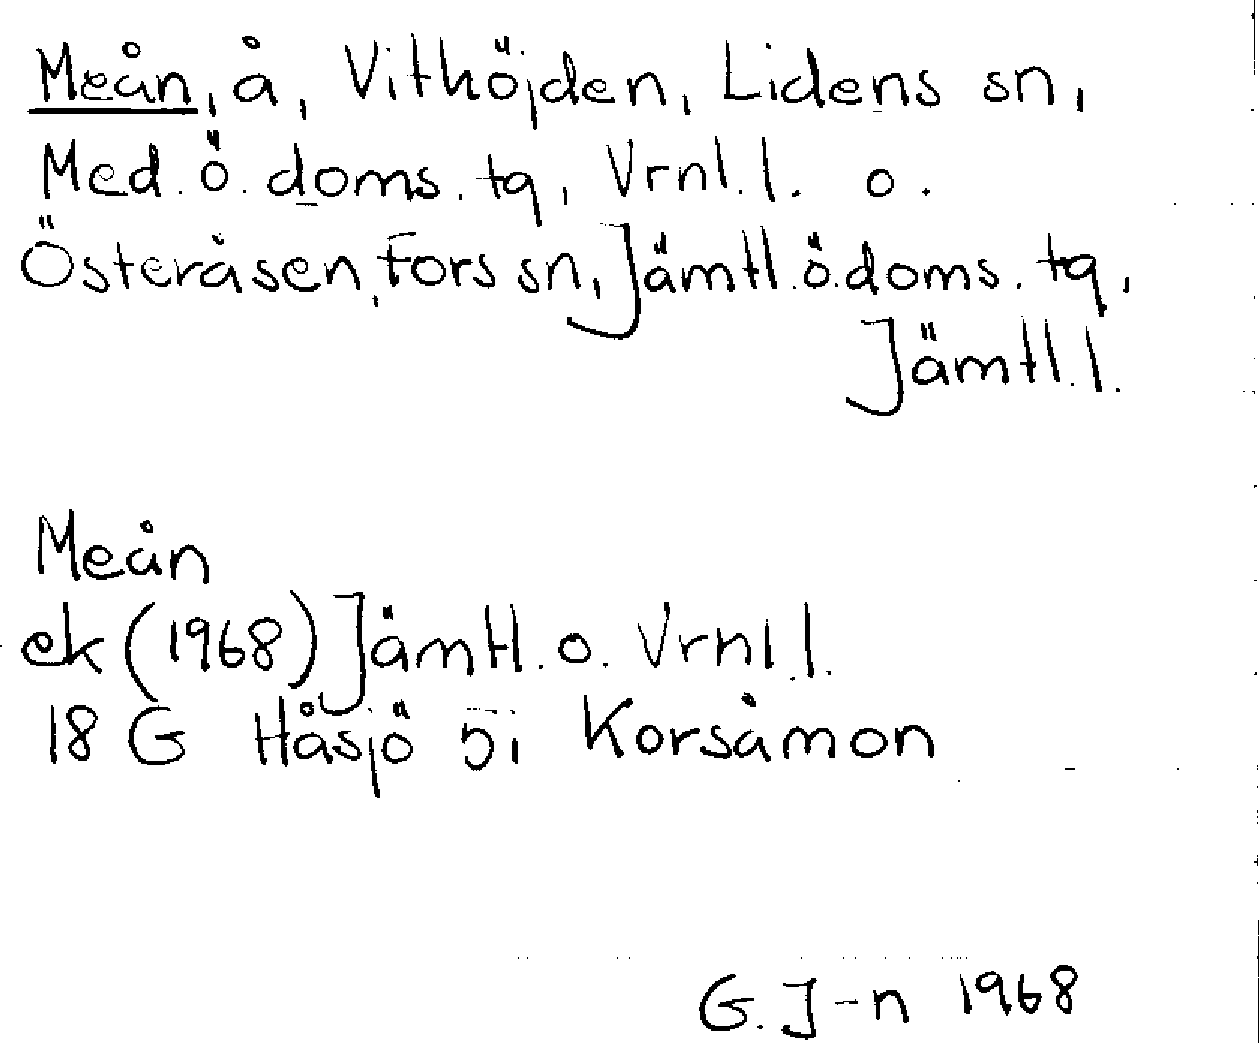 Meån, å, Vithöjden, Lidens sn,
Med. ö. doms. tg, Vrnl. l. o.
Österåsen, Fors sn, Jämtl. ö. doms. tg,
Jämtl. l.
Meån
ek (1968) Jämtl. o. Vrnl. l.
18 G Håsjö 5i Korsåmon
G. J-n 1968